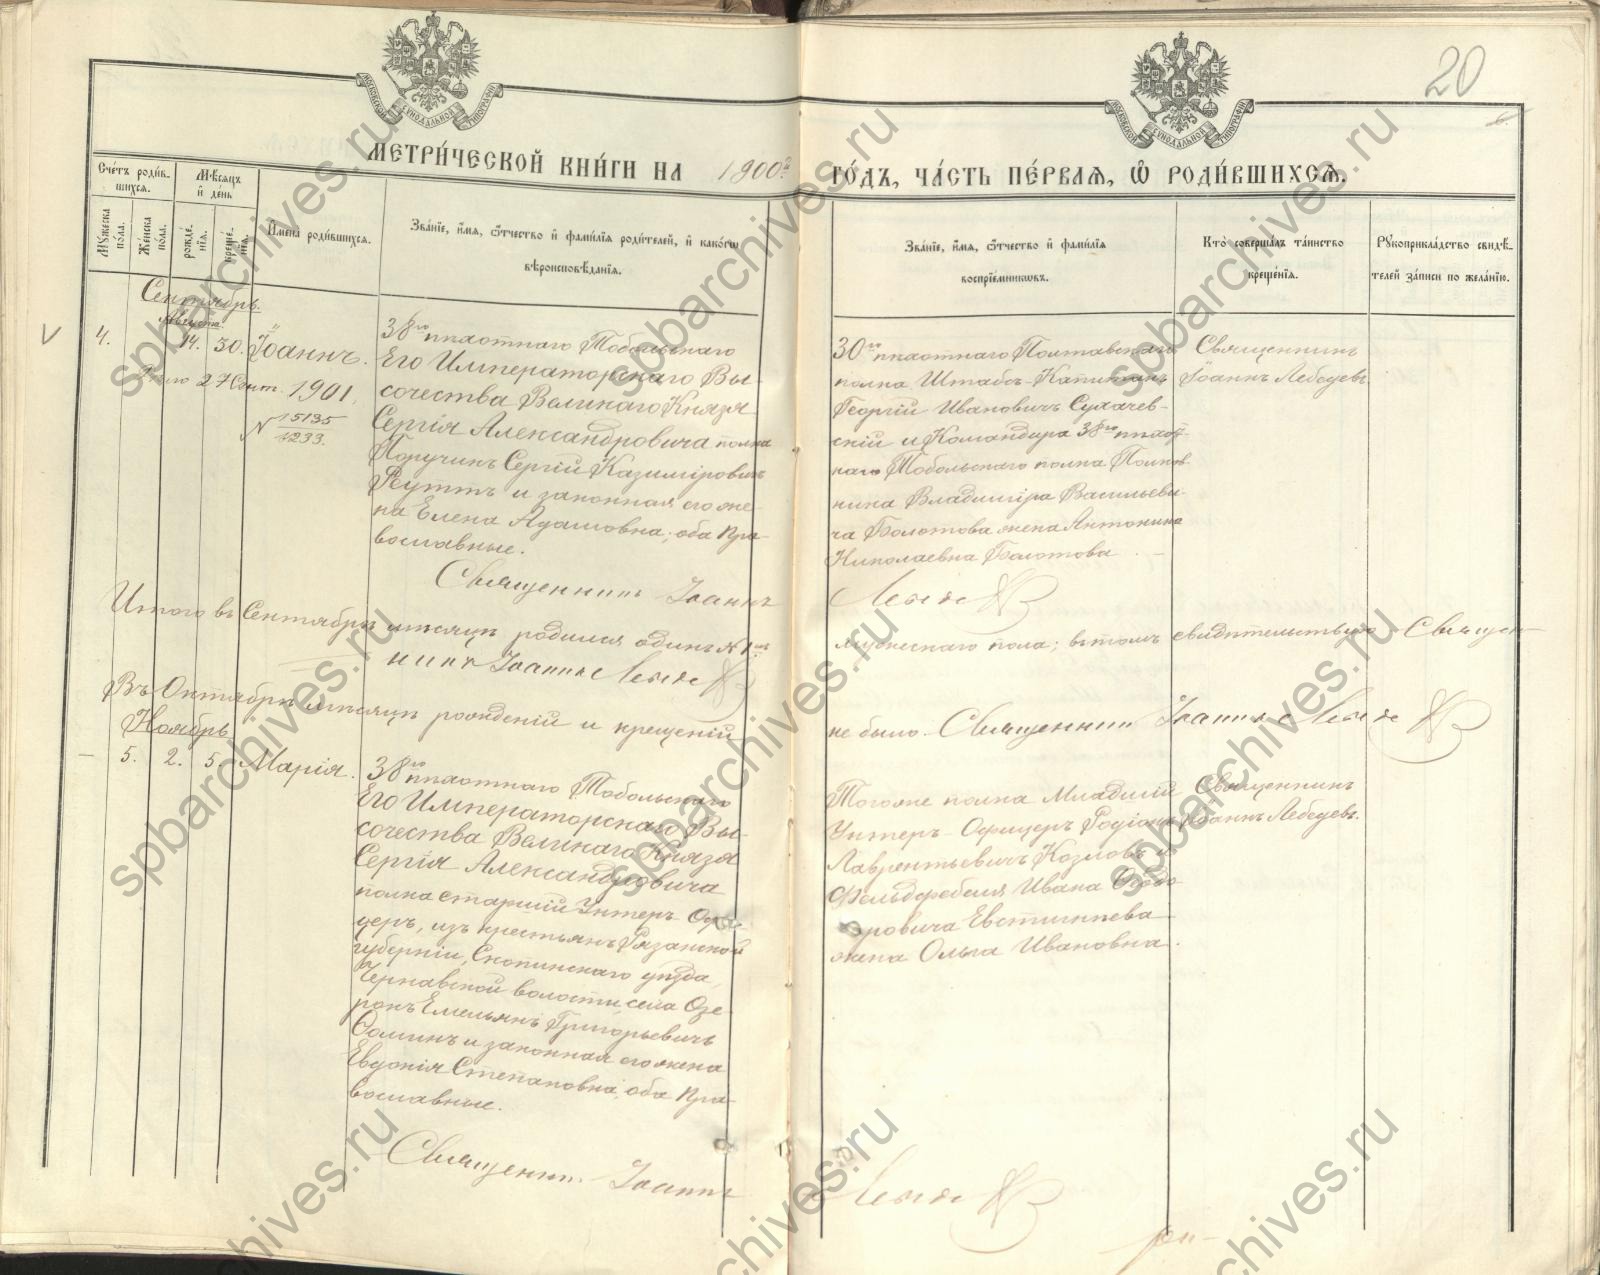 20
МОСКОВСКОЙ СУНОДАЛЬНОЙ ТИПОГРАФІИ
МОСКОВСКОЙ СУНОДАЛЬНОЙ ТИПОГРАФІИ
МЕТРИ́ЧЕСКОЙ КНИ́ГИ НА 1900й ГО́ДЪ, ЧА́СТЬ ПЕ́РВАЯ, Ѽ РОДИ́ВШИХСЯ.
Сче́тъ роди́в-
шихся.
Мѣсяцъ
и҆ де́нь
Мꙋжеска
по́ла.
Же́нска
по́ла.
рожде́-
нія.
креще́-
нія.
И҆мена̀ роди́вшихся.
Зва́ніе, и҆́мя, ѻ҆́тчество и҆ фами́лія роди́телей, и҆ како́гѡ
вѣроисповѣ́данія.
Зва́ніе, и҆́мя, ѻ҆́тчество и҆ фами́лія
воспріе́мниковъ.
Кто̀ соверша́лъ та́инство
креще́нія.
Рꙋкоприкла́дство свидѣ́-
телей за́писи по жела́нію.
Сентябрь.
Августа
4. 14. 30. Іоаннъ.
27 Сент. 1901.
№ 15135
1233.
38го пѣхотнаго Тобольскаго
Его Императорскаго Вы-
сочества Великаго Князя
Сергія Александровича полка
Поручикъ Сергій Казиміровичъ
Реуттъ и законная его же-
на Елена Адамовна, оба Пра-
вославные.
30го пѣхотнаго Полтавскаго
полка Штабсъ-Капитанъ
Георгій Ивановичъ Сухачев-
скій и Командира 38го пѣхот-
наго Тобольскаго полка Полков-
ника Владиміра Васильеви-
ча Болотова жена Антонина
Николаевна Болотова.
Священникъ
Іоаннъ Лебедевъ.
Священникъ Іоаннъ Лебедевъ
Итого въ Сентябрѣ мѣсяцѣ родился одинъ №1мъ мужескаго пола; въ томъ свидѣтельствую Священ-
никъ Іоаннъ Лебедевъ
Въ Октябрѣ мѣсяцѣ рожденій и крещеній не было. Священникъ Іоаннъ Лебедевъ
Ноябрь.
5. 2. 5. Марія.
38го пѣхотнаго Тобольскаго
Его Императорскаго Вы-
сочества Великаго Князя
Сергія Александровича
полка старшій Унтеръ-Офи-
церъ, изъ крестьянъ Рязанской
губерніи, Скопинскаго уѣзда,
Чернавской волости, села Озе-
рокъ Емельянъ Григорьевичъ
Ѳоминъ и законная его жена
Евдокія Степановна, оба Пра-
вославные.
Тогоже полка Младшій
Унтеръ-Офицеръ Родіонъ
Лаврентьевичъ Козловъ и
Фельдфебеля Ивана Ѳедо-
ровича Евстигнѣева
жена Ольга Ивановна.
Священникъ
Іоаннъ Лебедевъ.
Священникъ Іоаннъ Лебедевъ
spbarchives.ru